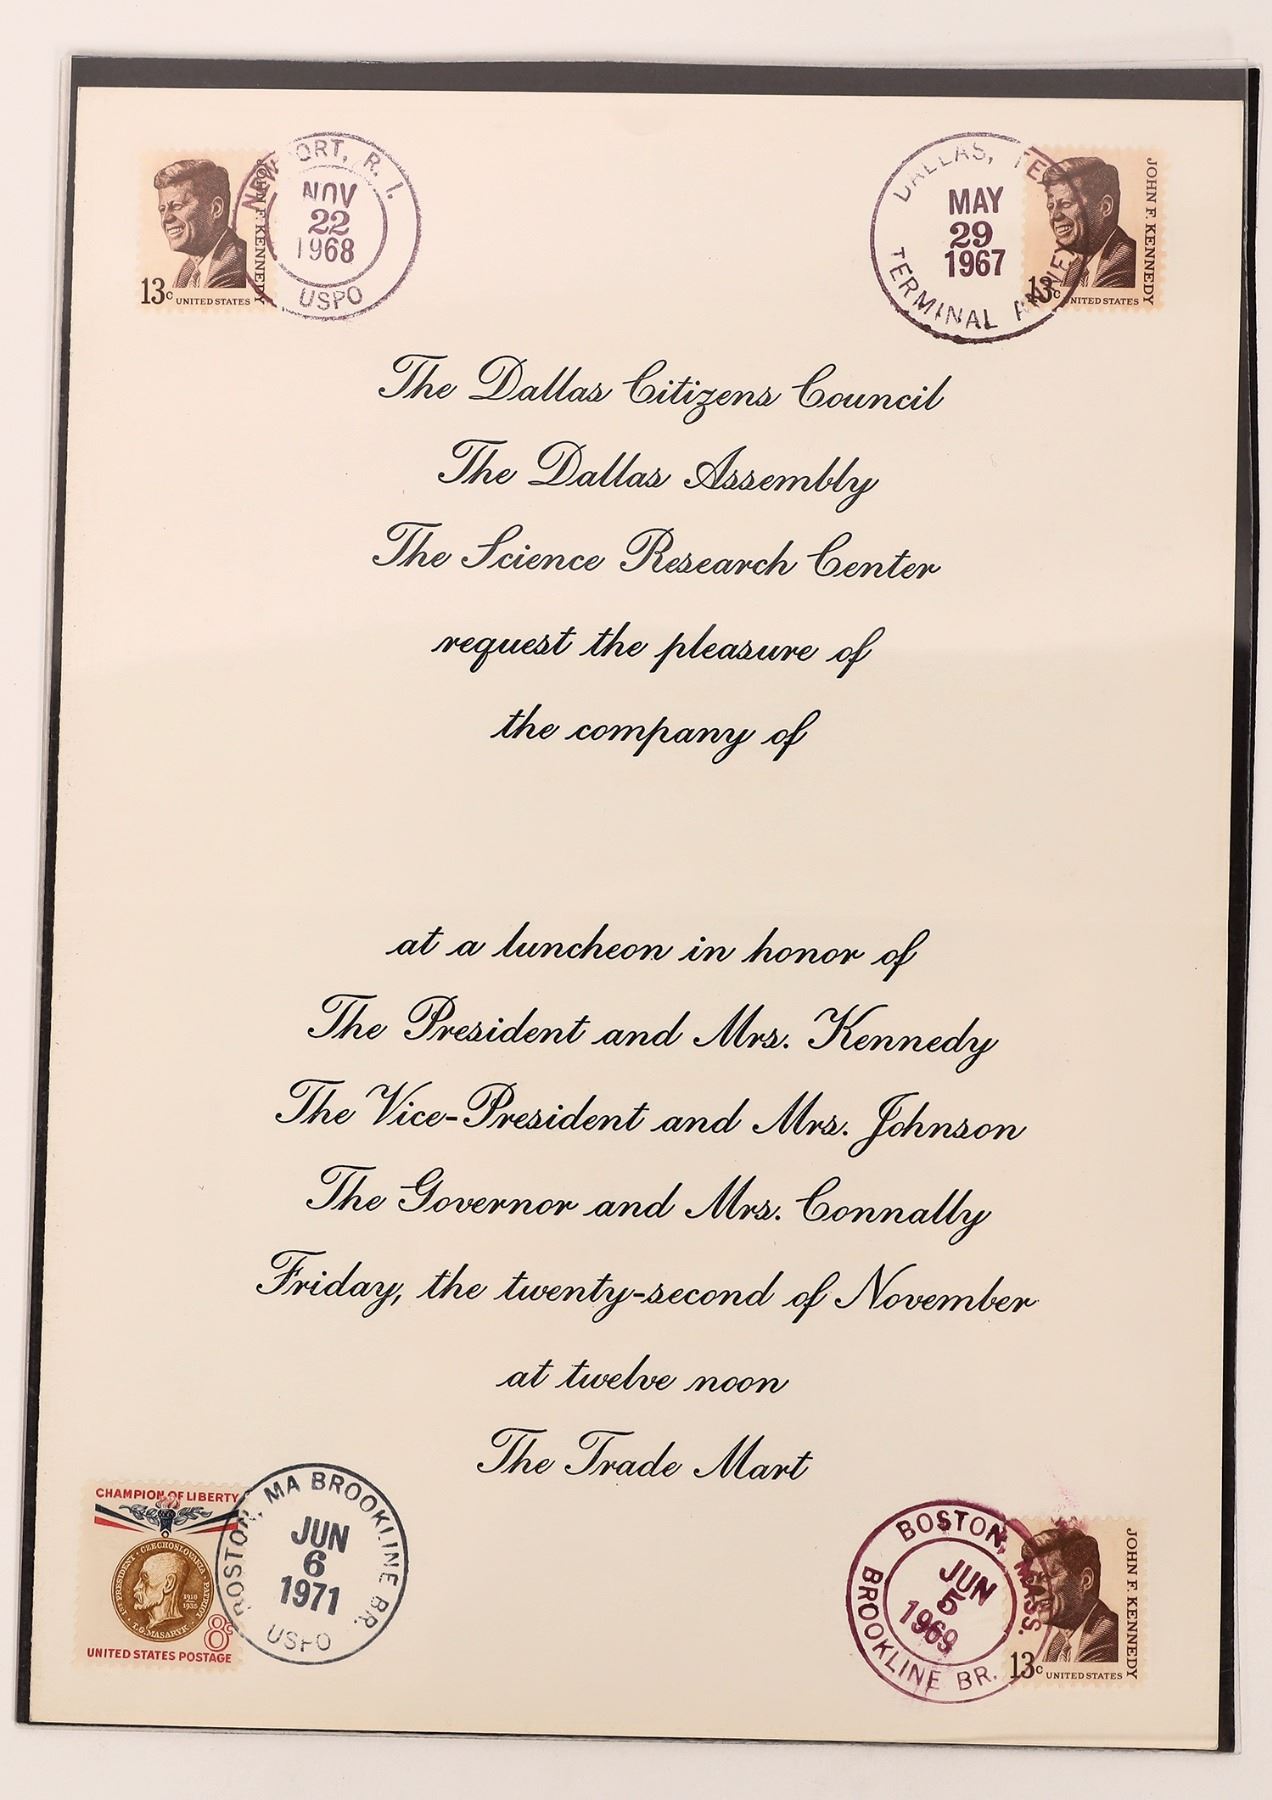 NEWPORT, R. I.
NOV
22
1968
USPO
JOHN F. KENNEDY
13c UNITED STATES
DALLAS, TE
MAY
29
1967
TERMINAL ANNEX
JOHN F. KENNEDY
13c UNITED STATES
The Dallas Citizens Council
The Dallas Assembly
The Science Research Center
request the pleasure of
the company of
at a luncheon in honor of
The President and Mrs. Kennedy
The Vice-President and Mrs. Johnson
The Governor and Mrs. Connally
Friday, the twenty-second of November
at twelve noon
The Trade Mart
CHAMPION OF LIBERTY
1ST PRESIDENT · CZECHOSLOVAKIA PATRIOT
1918
1935
· T.G. MASARYK ·
8c
UNITED STATES POSTAGE
BOSTON, MA BROOKLINE BR.
JUN
6
1971
USPO
BOSTON, MASS.
JUN
5
1969
BROOKLINE BR.
JOHN F. KENNEDY
13c UNITED STATES